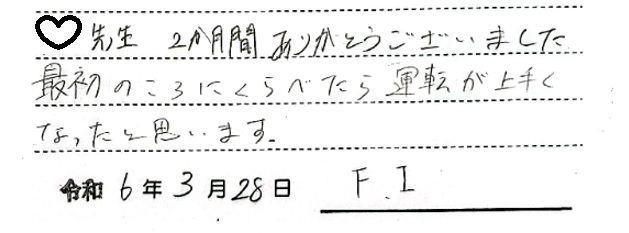 ♡先生 2か月間ありがとうございました
最初のころにくらべたら運転が上手く
なったと思います。
令和6年3月28日 F.I